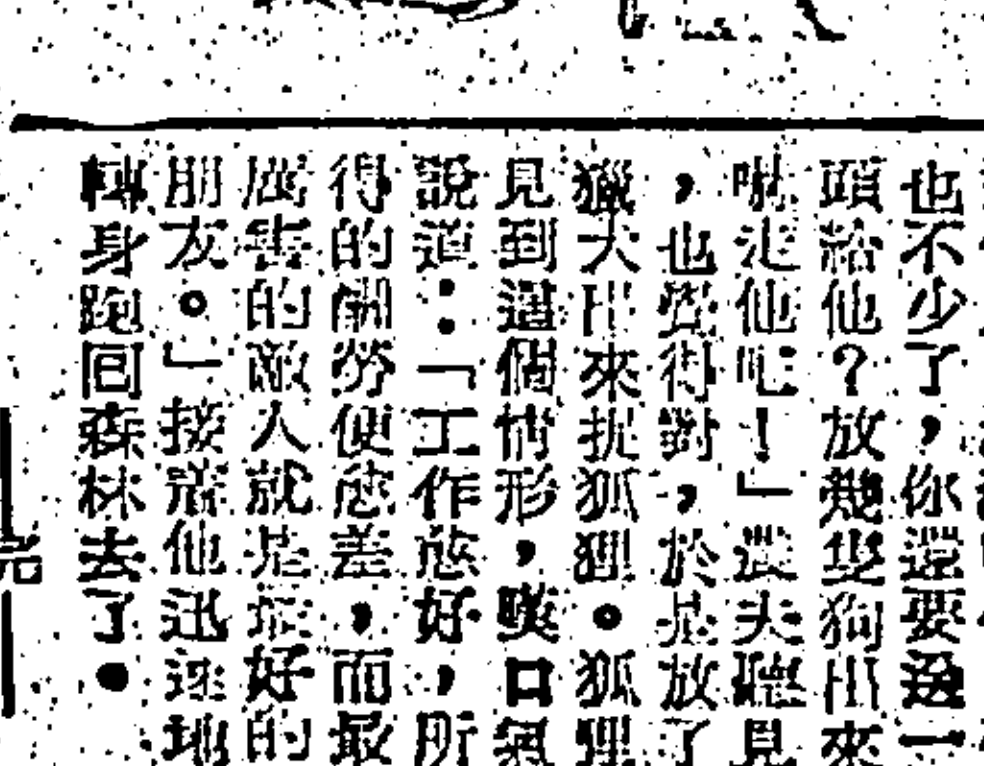 也不少了，你還要送一
頭給他？放幾隻狗出來
嚇走他吧！」農夫聽見
，也覺得對，於是放了
獵犬出來捉狐狸。狐狸
見到這個情形，嘆口氣
說道：「工作愈好，所
得的酬勞便愈差，而最
厲害的敵人就是最好的
朋友。」接着他迅速地
轉身跑回森林去了●
完